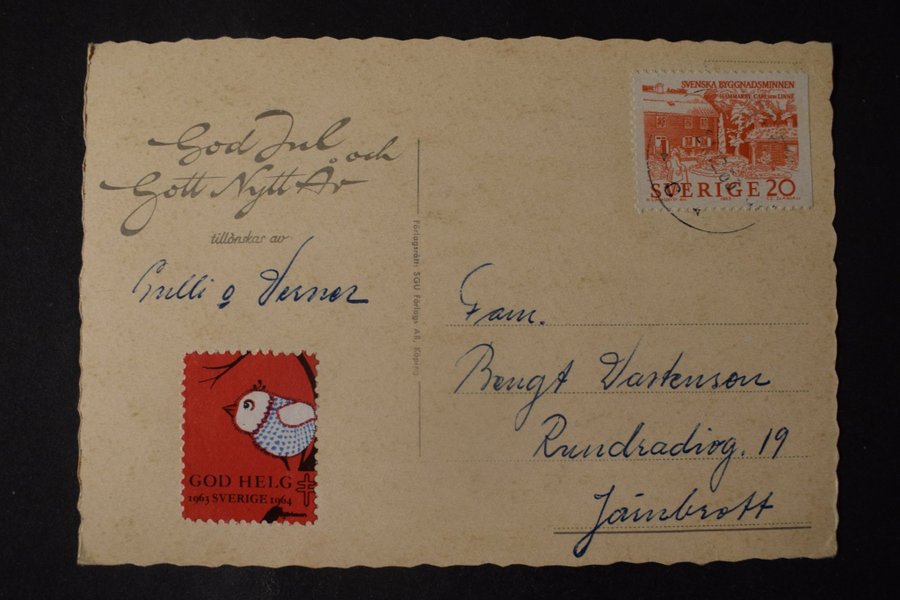 God Jul och
Gott Nytt År
tillönskar av
Gulli o Verner
Förlagsrätt: SGU Förlags AB, Köping
SVENSKA BYGGNADSMINNEN
HAMMARBY CARL VON LINNÉ
SVERIGE 20
1963
Fam.
Bengt Wastenson
Rundradiog. 19
Järnbrott
GOD HELG
1963 SVERIGE 1964